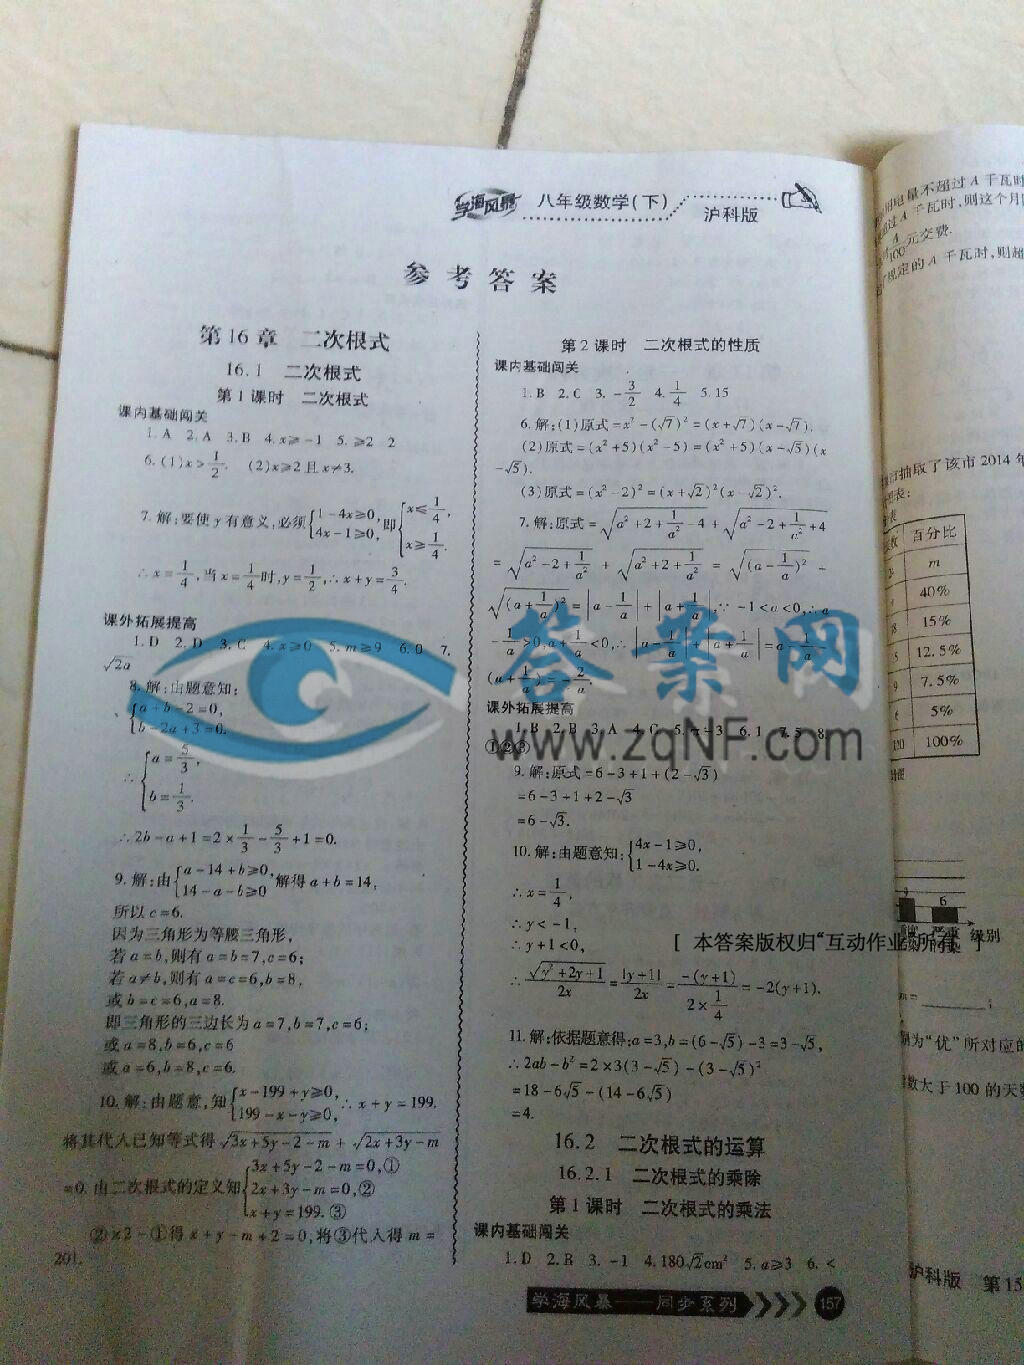 学海风暴 八年级数学(下) 沪科版
参考答案
第16章 二次根式
16.1 二次根式
第1课时 二次根式
课内基础闯关
1.A 2.A 3.B 4.x≥-1 5.≥2 2
6.(1)x>1/2. (2)x≥2且x≠3.
7.解:要使y有意义,必须{1-4x≥0, 4x-1≥0,即{x≤1/4, x≥1/4.
∴x=1/4,当x=1/4时,y=1/2,∴x+y=3/4.
课外拓展提高
1.D 2.D 3.C 4.x≥0 5.m≥9 6.0 7.
√2a
8.解:由题意知:
{a+b-2=0,
b-2a+3=0.
∴{a=5/3,
b=1/3.
∴2b-a+1=2×1/3-5/3+1=0.
9.解:由{a-14+b≥0, 14-a-b≥0 解得a+b=14,
所以c=6.
因为三角形为等腰三角形,
若a=b,则有a=b=7,c=6;
若a≠b,则有a=c=6,b=8,
或b=c=6,a=8.
即三角形的三边长为a=7,b=7,c=6;
或a=8,b=6,c=6
或a=6,b=8,c=6.
10.解:由题意,知{x-199+y≥0, 199-x-y≥0,∴x+y=199.
将其代入已知等式得√3x+5y-2-m+√2x+3y-m
=0.由二次根式的定义知{3x+5y-2-m=0,① 2x+3y-m=0,② x+y=199.③
②×2-①得x+y-m+2=0,将③代入得m=
201.
第2课时 二次根式的性质
课内基础闯关
1.B 2.C 3.-3/2 4.1/4 5.15
6.解:(1)原式=x²-(√7)²=(x+√7)(x-√7).
(2)原式=(x²+5)(x²-5)=(x²+5)(x-√5)(x
-√5).
(3)原式=(x²-2)²=(x+√2)²(x-√2)².
7.解:原式=√a²+2+1/a²-4+√a²-2+1/a²+4
=√a²-2+1/a²+√a²+2+1/a²=√(a-1/a)²+
√(a+1/a)²=|a-1/a|+|a+1/a|,∵-1<a<0,∴a
-1/a>0,a+1/a<0,∴|a-1/a|+|a+1/a|=a-1/a-
(a+1/a)=-2/a.
课外拓展提高
1.B 2.B 3.A 4.C 6.1 7.5 8.
①②③
9.解:原式=6-3+1+(2-√3)
=6-3+1+2-√3
=6-√3.
10.解:由题意知:{4x-1≥0, 1-4x≥0.
∴x=1/4,
∴y<-1,
∴y+1<0,
∴√y²+2y+1/2x=|y+1|/2x=-(y+1)/2×1/4=-2(y+1).
11.解:依据题意得:a=3,b=(6-√5)-3=3-√5,
∴2ab-b²=2×3(3-√5)-(3-√5)²
=18-6√5-(14-6√5)
=4.
16.2 二次根式的运算
16.2.1 二次根式的乘除
第1课时 二次根式的乘法
课内基础闯关
1.D 2.B 3.-1 4.180√2cm² 5.a≥3 6.<
学海风暴——同步系列 157
用电量不超过A千瓦时
超过A千瓦时,则这个月
A/100元交费.
了规定的A千瓦时,则超
抽取了该市2014年
图表:
百分比
m
40%
15%
12.5%
7.5%
5%
120 100%
9
6
严重
污染
级别
m=______;
为“优”所对应的
数大于100的天数
沪科版 第15
答案网
www.zqNF.com
[ 本答案版权归“互动作业”所有 ]